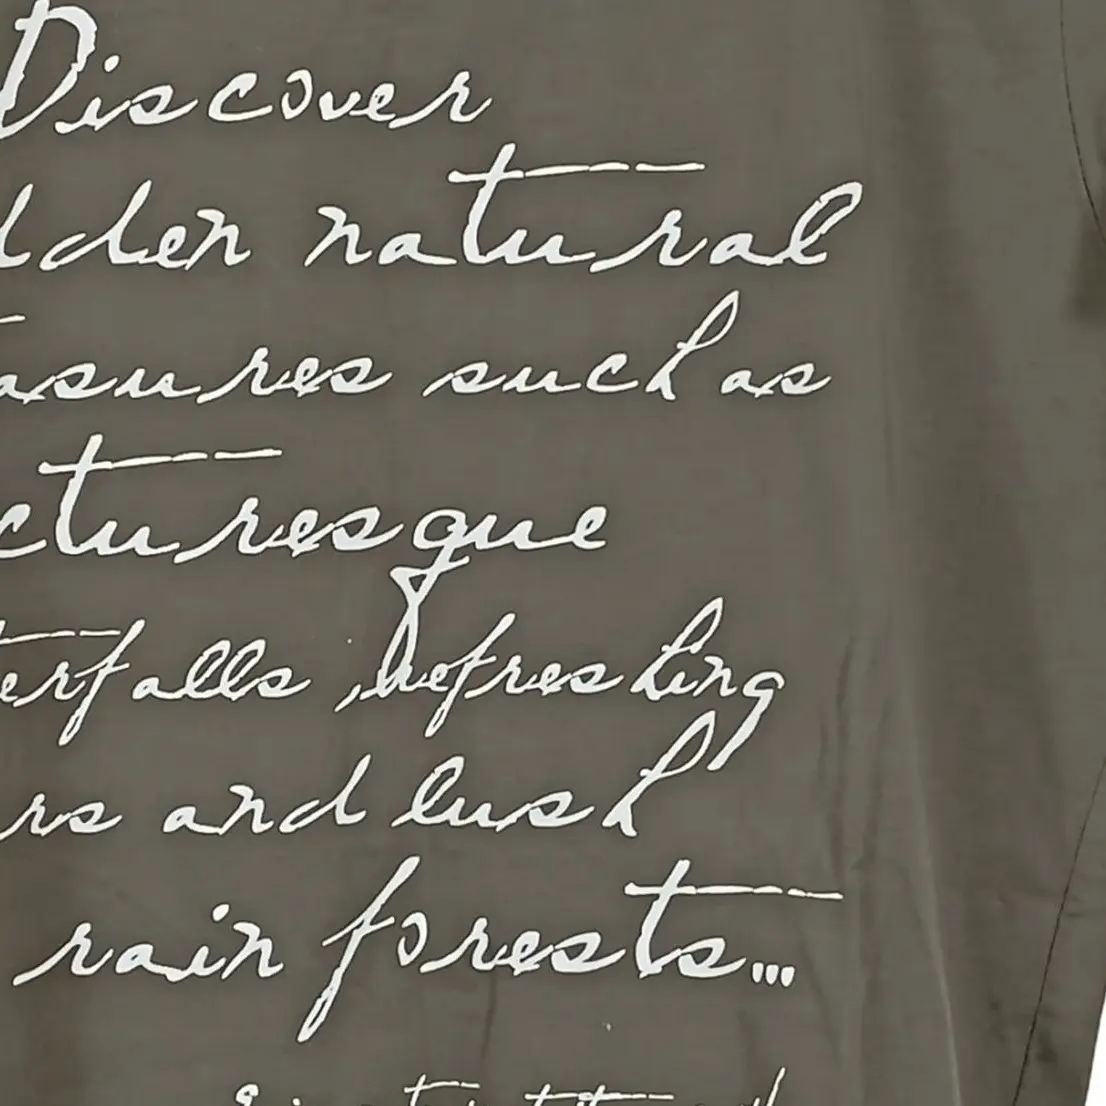 Discover
dden natural
asures such as
cturesque
terfalls, refreshing
rs and lush
rain forests...